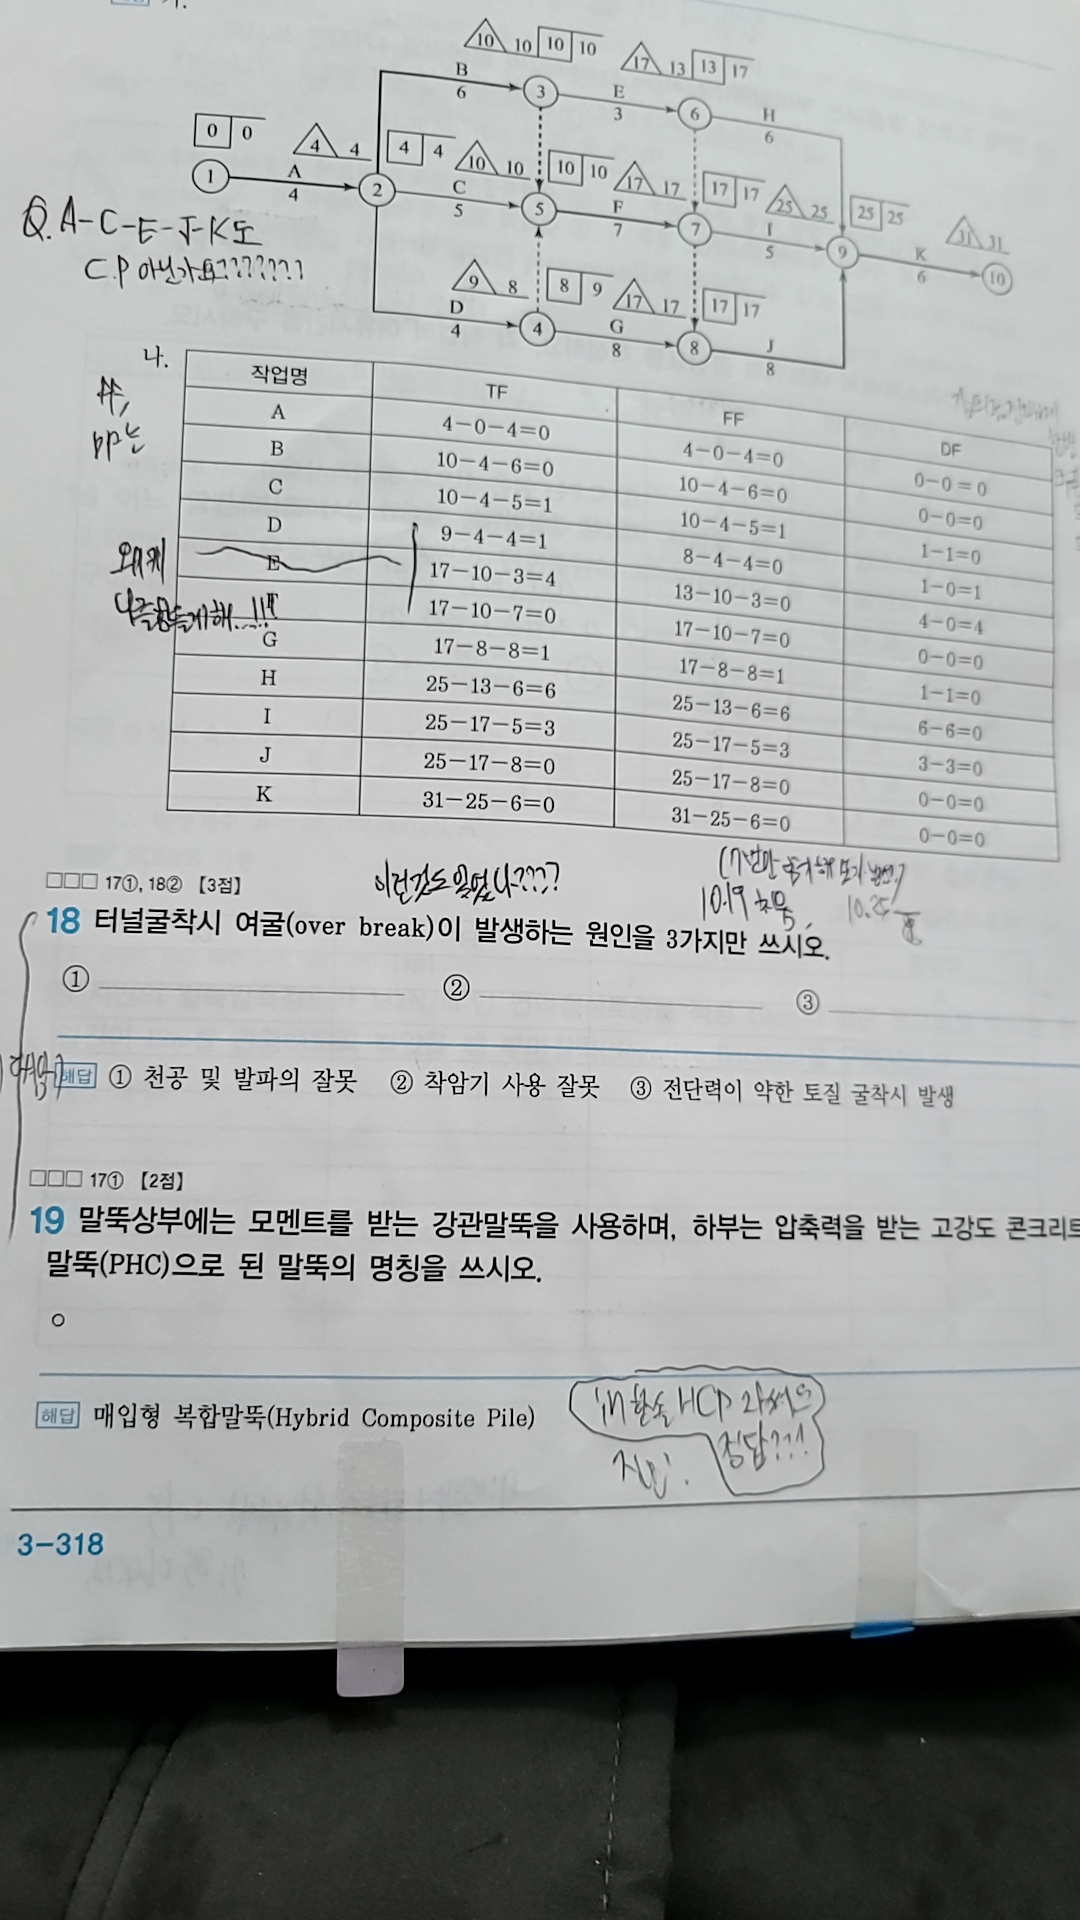 10 10 10 10
17 13 13 17
B 6 3 E 3 6 H 6
0 0
4 4
4 4
10 10
10 10
17 17
17 17
25 25
25 25
31 31
1 A 4 2 C 5 5 F 7 7 I 5 9 K 6 10
Q. A-C-E-J-K도
C.P 아닌가요???????
9 8
8 9
17 17
17 17
D 4 4 G 8 8 J 8
나.
작업명 TF FF DF
A 4-0-4=0 4-0-4=0 0-0=0
B 10-4-6=0 10-4-6=0 0-0=0
C 10-4-5=1 10-4-5=1 1-1=0
D 9-4-4=1 8-4-4=0 1-0=1
E 17-10-3=4 13-10-3=0 4-0=4
F 17-10-7=0 17-10-7=0 0-0=0
G 17-8-8=1 17-8-8=1 1-1=0
H 25-13-6=6 25-13-6=6 6-6=0
I 25-17-5=3 25-17-5=3 3-3=0
J 25-17-8=0 25-17-8=0 0-0=0
K 31-25-6=0 31-25-6=0 0-0=0
이런것도 있었나????
10.19
□□□ 17①, 18② 【3점】
18 터널굴착시 여굴(over break)이 발생하는 원인을 3가지만 쓰시오.
① ② ③
해답 ① 천공 및 발파의 잘못 ② 착암기 사용 잘못 ③ 전단력이 약한 토질 굴착시 발생
□□□ 17① 【2점】
19 말뚝상부에는 모멘트를 받는 강관말뚝을 사용하며, 하부는 압축력을 받는 고강도 콘크리트
말뚝(PHC)으로 된 말뚝의 명칭을 쓰시오.
○
해답 매입형 복합말뚝(Hybrid Composite Pile)
정답??!
3-318